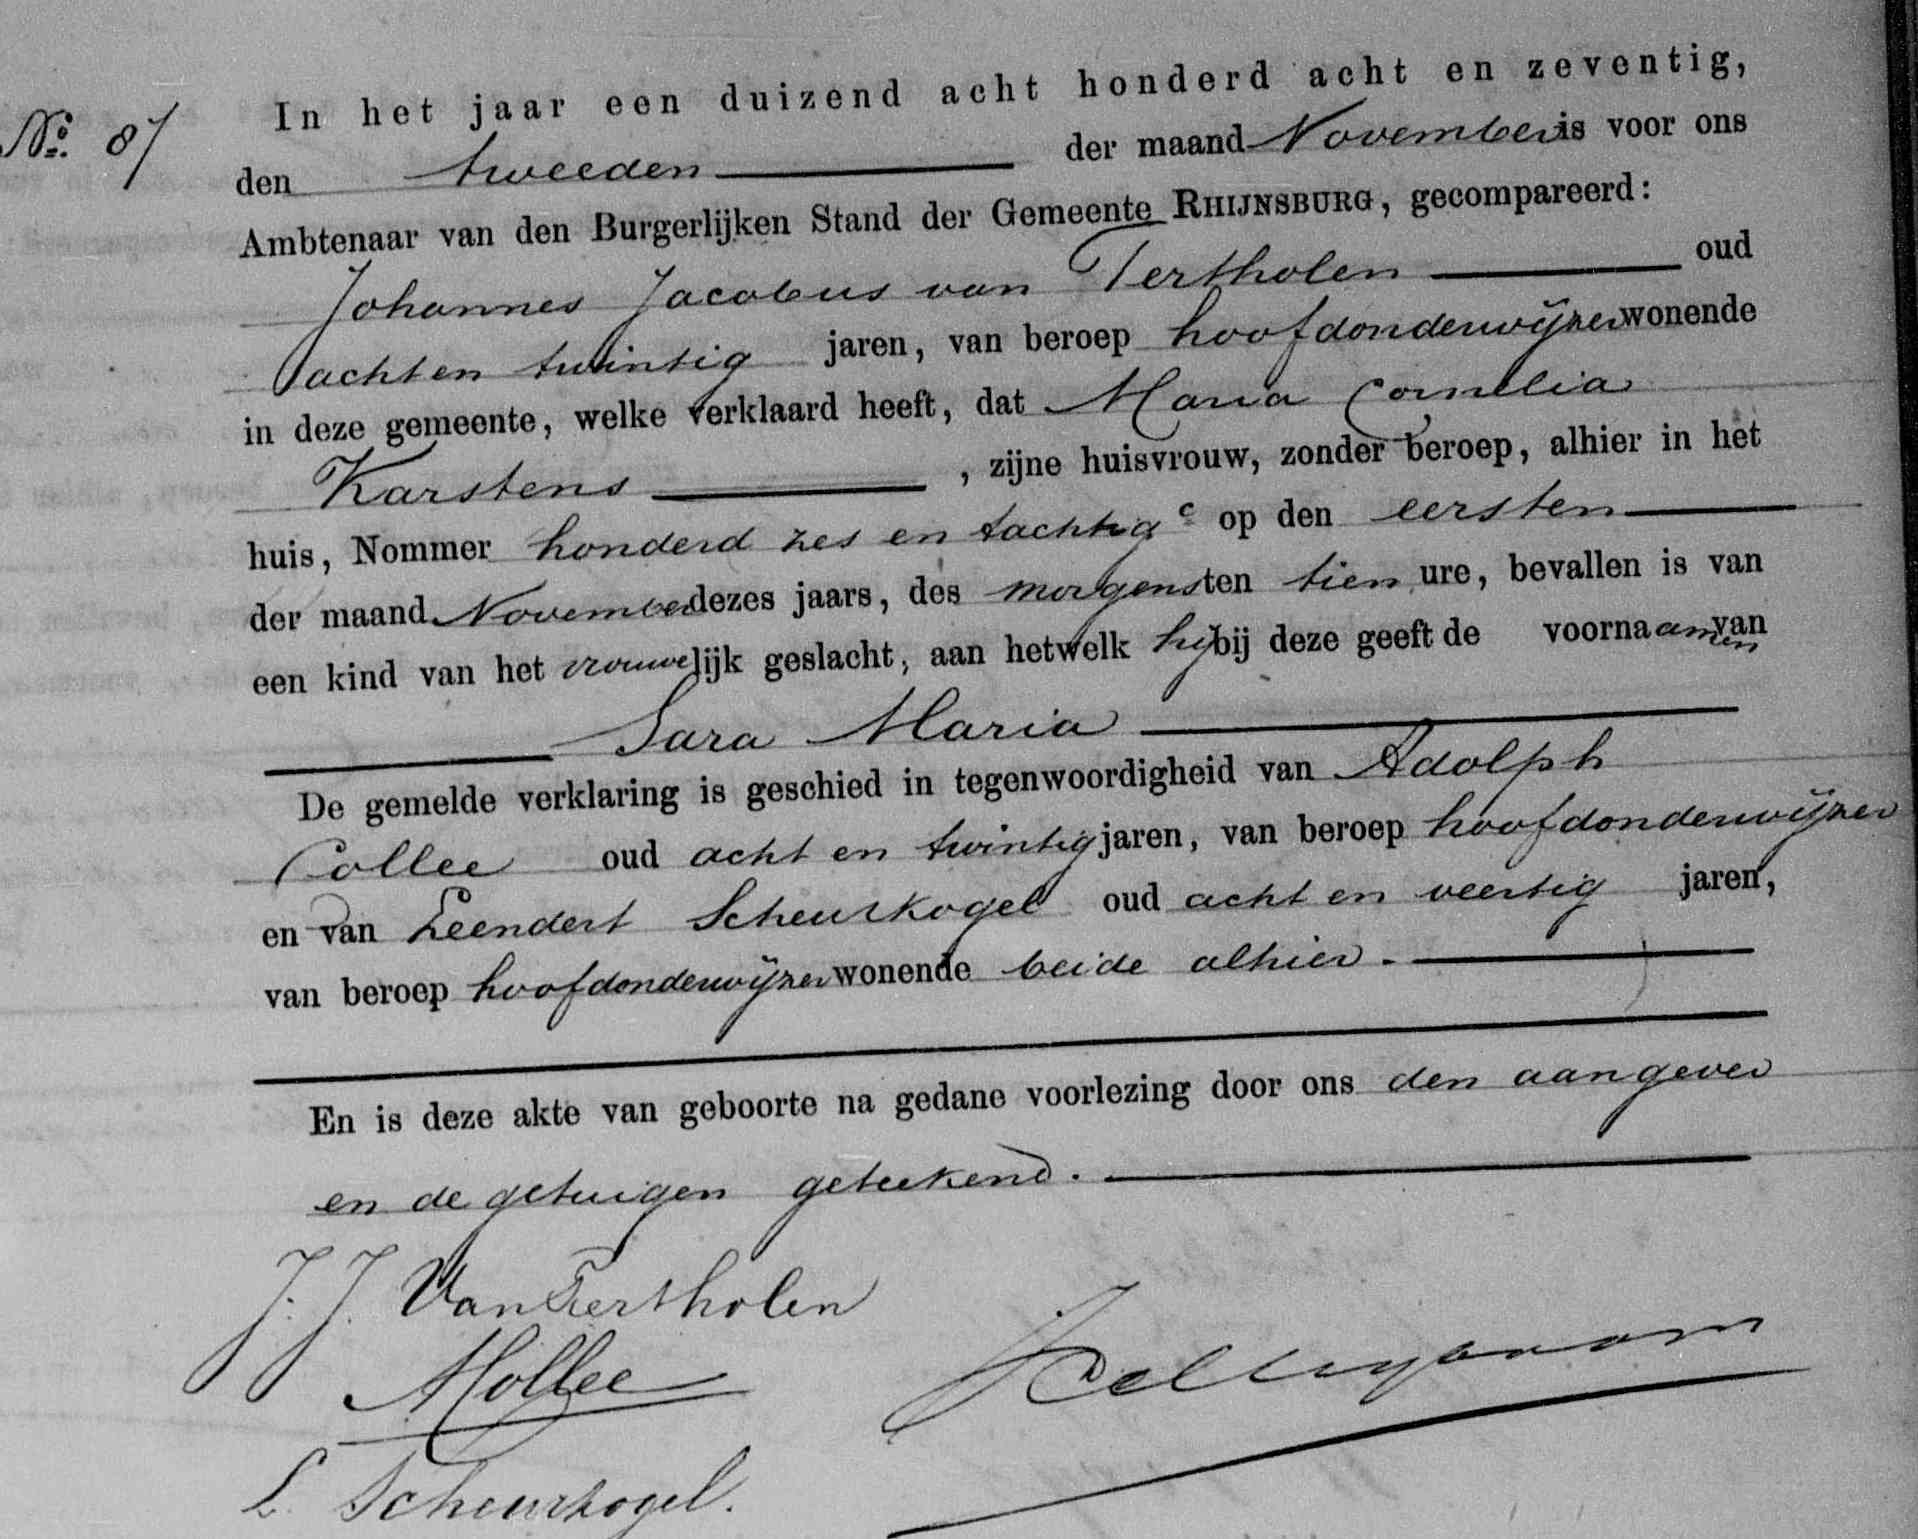 No. 87
In het jaar een duizend acht honderd acht en zeventig,
den tweeden der maand November is voor ons
Ambtenaar van den Burgerlijken Stand der Gemeente RHIJNSBURG, gecompareerd:
Johannes Jacobus van Tertholen oud
acht en twintig jaren, van beroep hoofdonderwijzer wonende
in deze gemeente, welke verklaard heeft, dat Maria Cornelia
Karstens , zijne huisvrouw, zonder beroep, alhier in het
huis, Nommer honderd zes en tachtig c op den eersten
der maand November dezes jaars, des morgens ten tien ure, bevallen is van
een kind van het vrouwelijk geslacht, aan hetwelk hij bij deze geeft de voornaamen van
Sara Maria
De gemelde verklaring is geschied in tegenwoordigheid van Adolph
Collee oud acht en twintig jaren, van beroep hoofdonderwijzer
en van Leendert Scheurkogel oud acht en veertig jaren,
van beroep hoofdonderwijzer wonende beide alhier.
En is deze akte van geboorte na gedane voorlezing door ons den aangever
en de getuigen geteekend.
J. J. Van Tertholen
L. Scheurkogel.